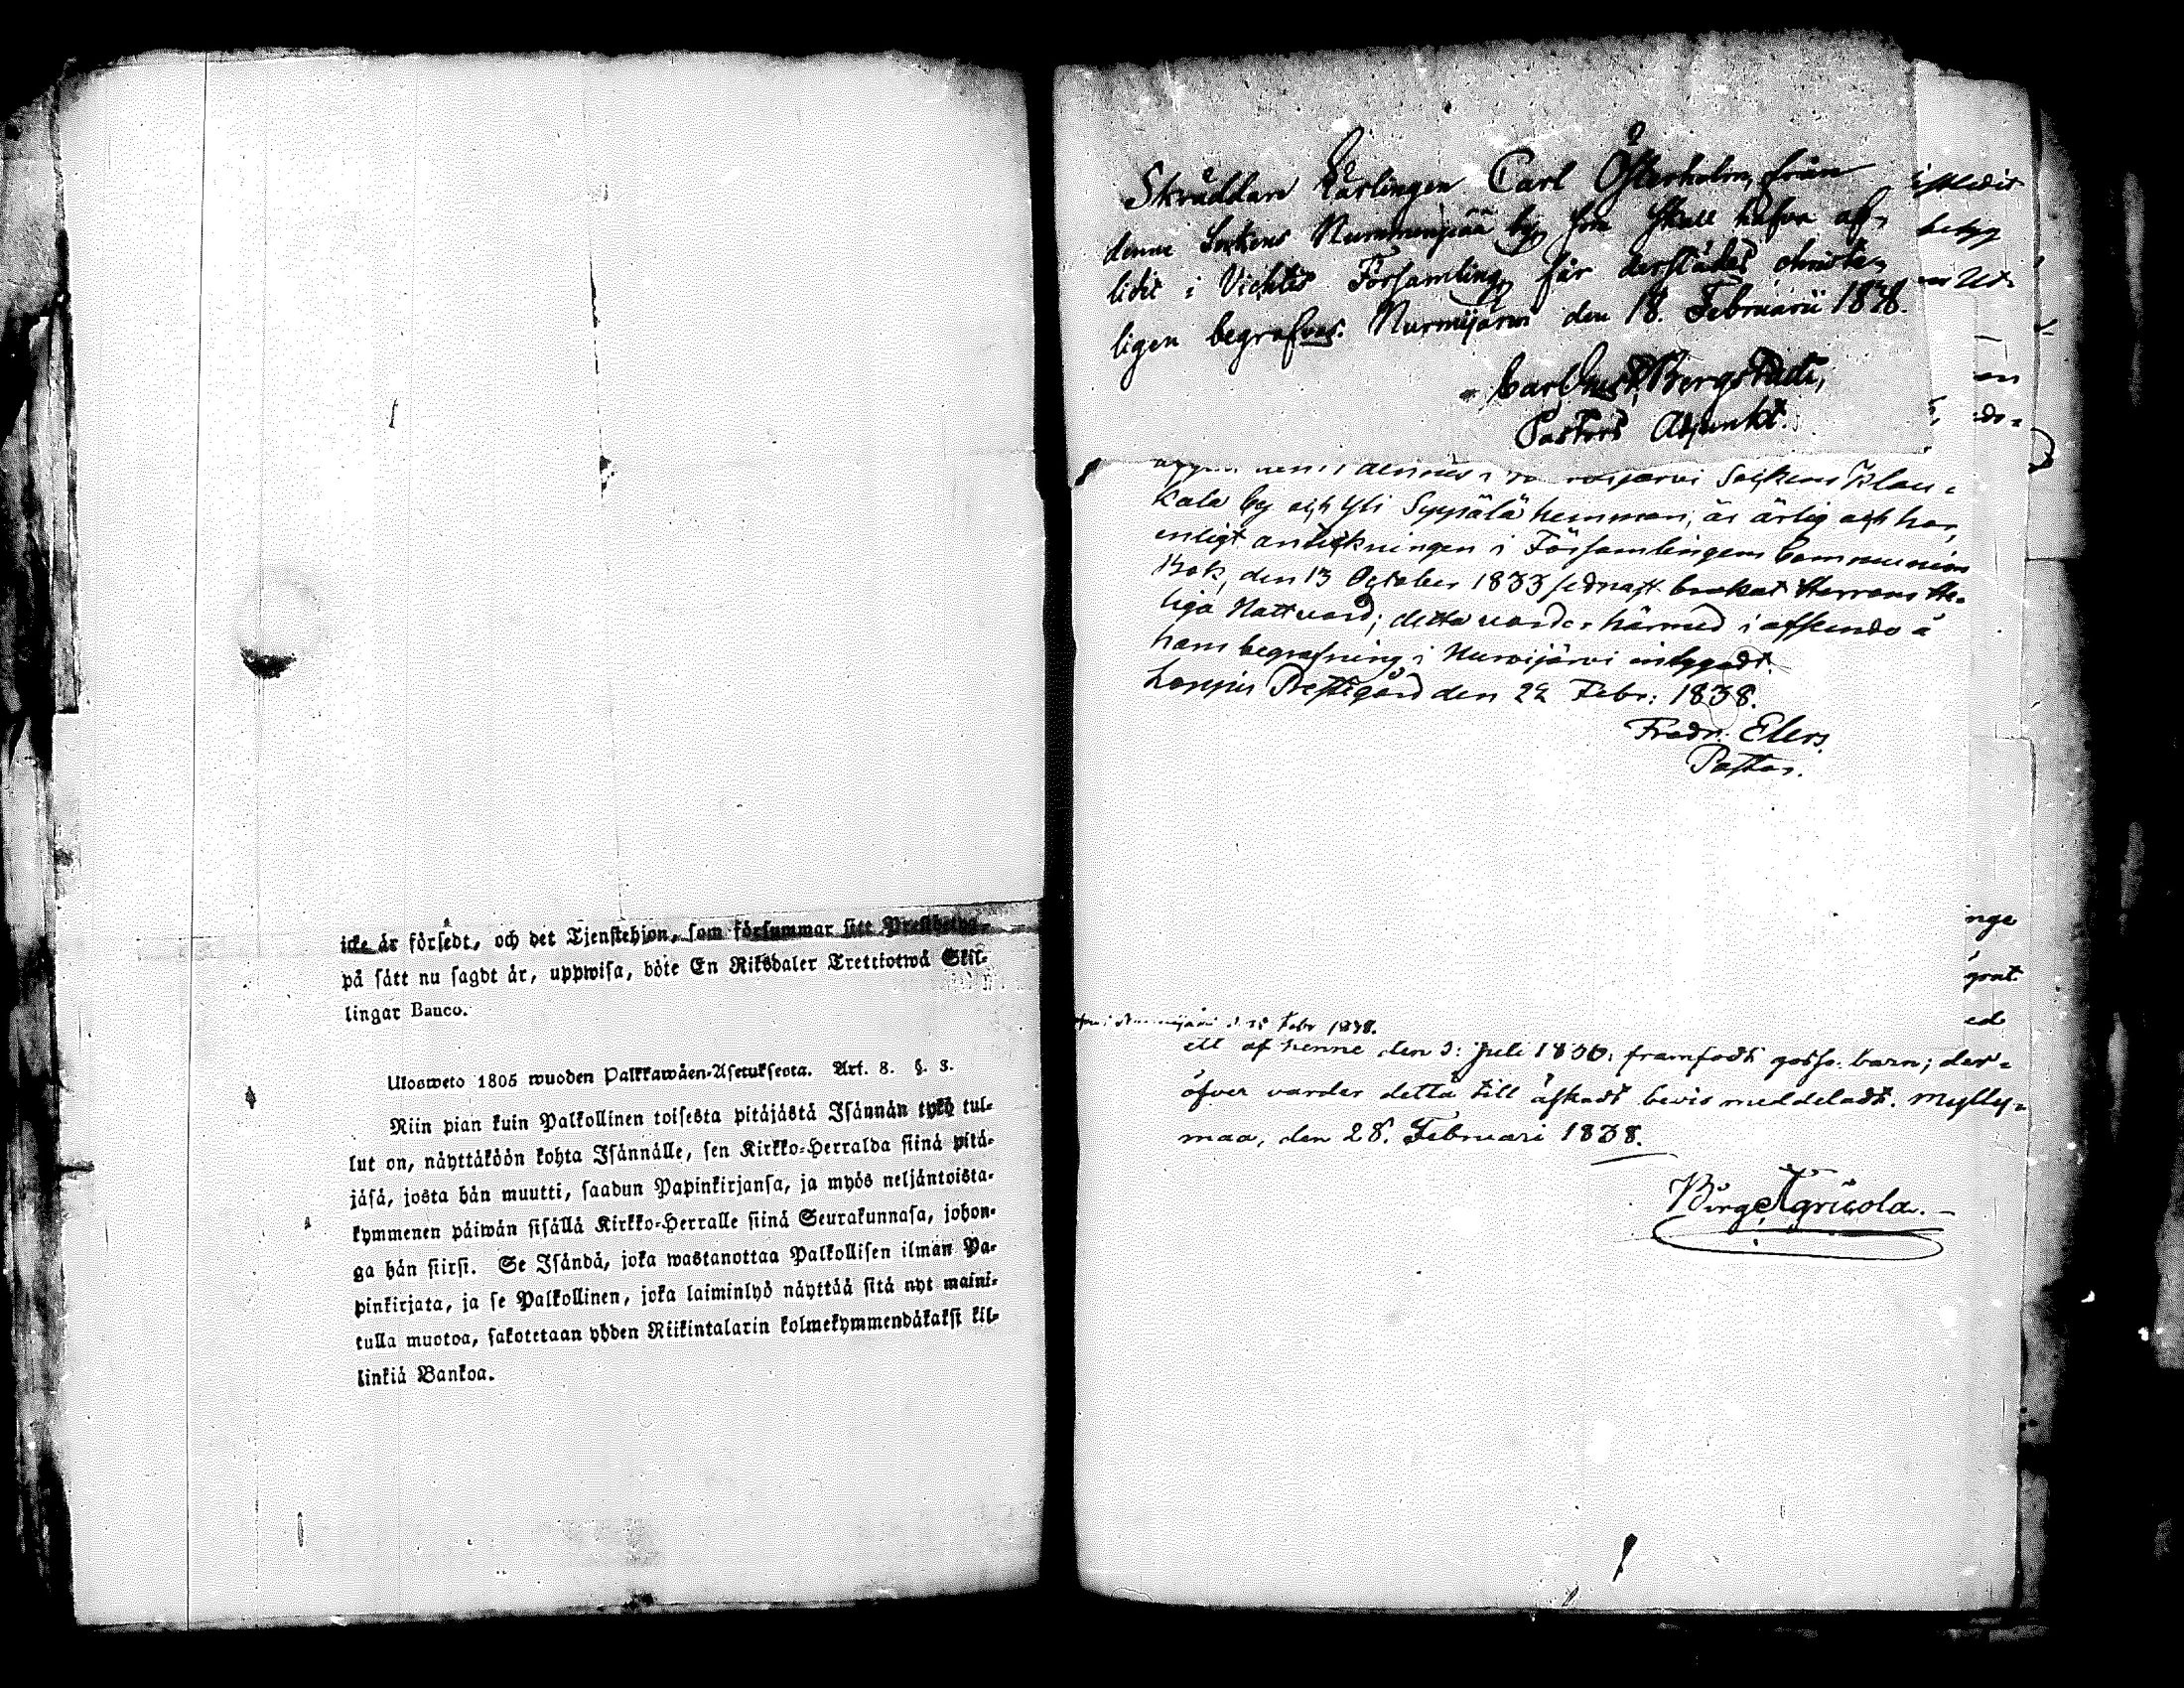 icke är försedt, och det Tjenstehjon, som försummar sitt Prestbetyg,
på sätt nu sagdt är, uppwisa, böte En Riksdaler Trettiotwå Skil-
lingar Banco.
Ulosweto 1805 wuoden Palkkawäen-Asetuksesta. Art. 8. §. 3.
Niin pian kuin Palkollinen toisesta pitäjästä Isännän tykö tul-
lut on, näyttäköön kohta Isännälle, sen Kirkko-Herralda siinä pitä-
jäsä, josta hän muutti, saadun Papinkirjansa, ja myös neljäntoista-
kymmenen päiwän sisällä Kirkko-Herralle siinä Seurakunnasa, johon-
ga hän siirsi. Se Isändä, joka wastanottaa Palkollisen ilman Pa-
pinkirjata, ja se Palkollinen, joka laiminlyö näyttää sitä nyt maini-
tulla muotoa, sakotetaan yhden Riikintalarin kolmekymmendäkaksi kil-
linkiä Bankoa.
Skräddare Lärlingen Carl Österholm, från
denne Sockens Nummenpää by, som skall hafva af-
lidit i Vichtis Församling, får derstädes christe-
ligen begrafvas. Nurmijärvi den 18. Februarii 1838.
Bergstadi,
Pastors Adjunkt.
Sockens Klau-
kala by och Yli Syppälä hemman, är ärlig och har,
enligt anteckningen i Församlingens Communion
Bok, den 13 October 1833 sednast brukat Herrans He-
liga Nattvard; detta varder härmed i afseende å
hans begrafning i Nurmijärvi intygadt.
Loppis Prestegård den 22 Febr: 1838.
Fredr. Elers.
Pastor.
Febr 1838.
ett af henne den 3: Juli 1836: framfödt gosse barn; der-
öfver varder detta till äskadt bevis meddeladt. Mylly-
maa, den 28. Februari 1838.
Birg Agricola.